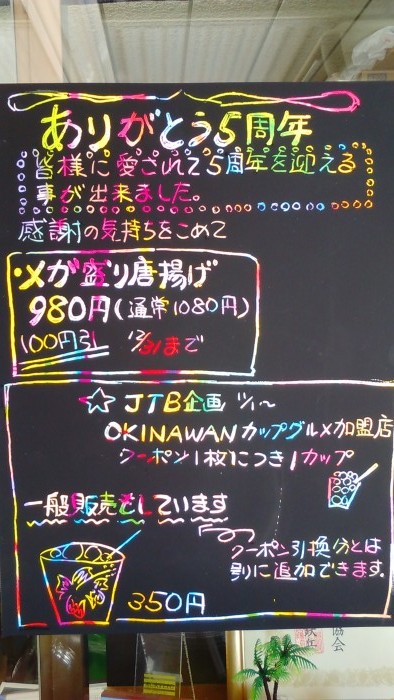 ありがとう5周年
皆様に愛されて5周年を迎える
事が出来ました。
感謝の気持ちをこめて
・メガ盛り唐揚げ
980円(通常1080円)
100円引 12/31まで
☆ JTB企画 11/1〜
OKINAWANカップグルメ加盟店
クーポン1枚につき1カップ
一般販売もしています
クーポン引換分とは
別に追加できます。
350円
協会